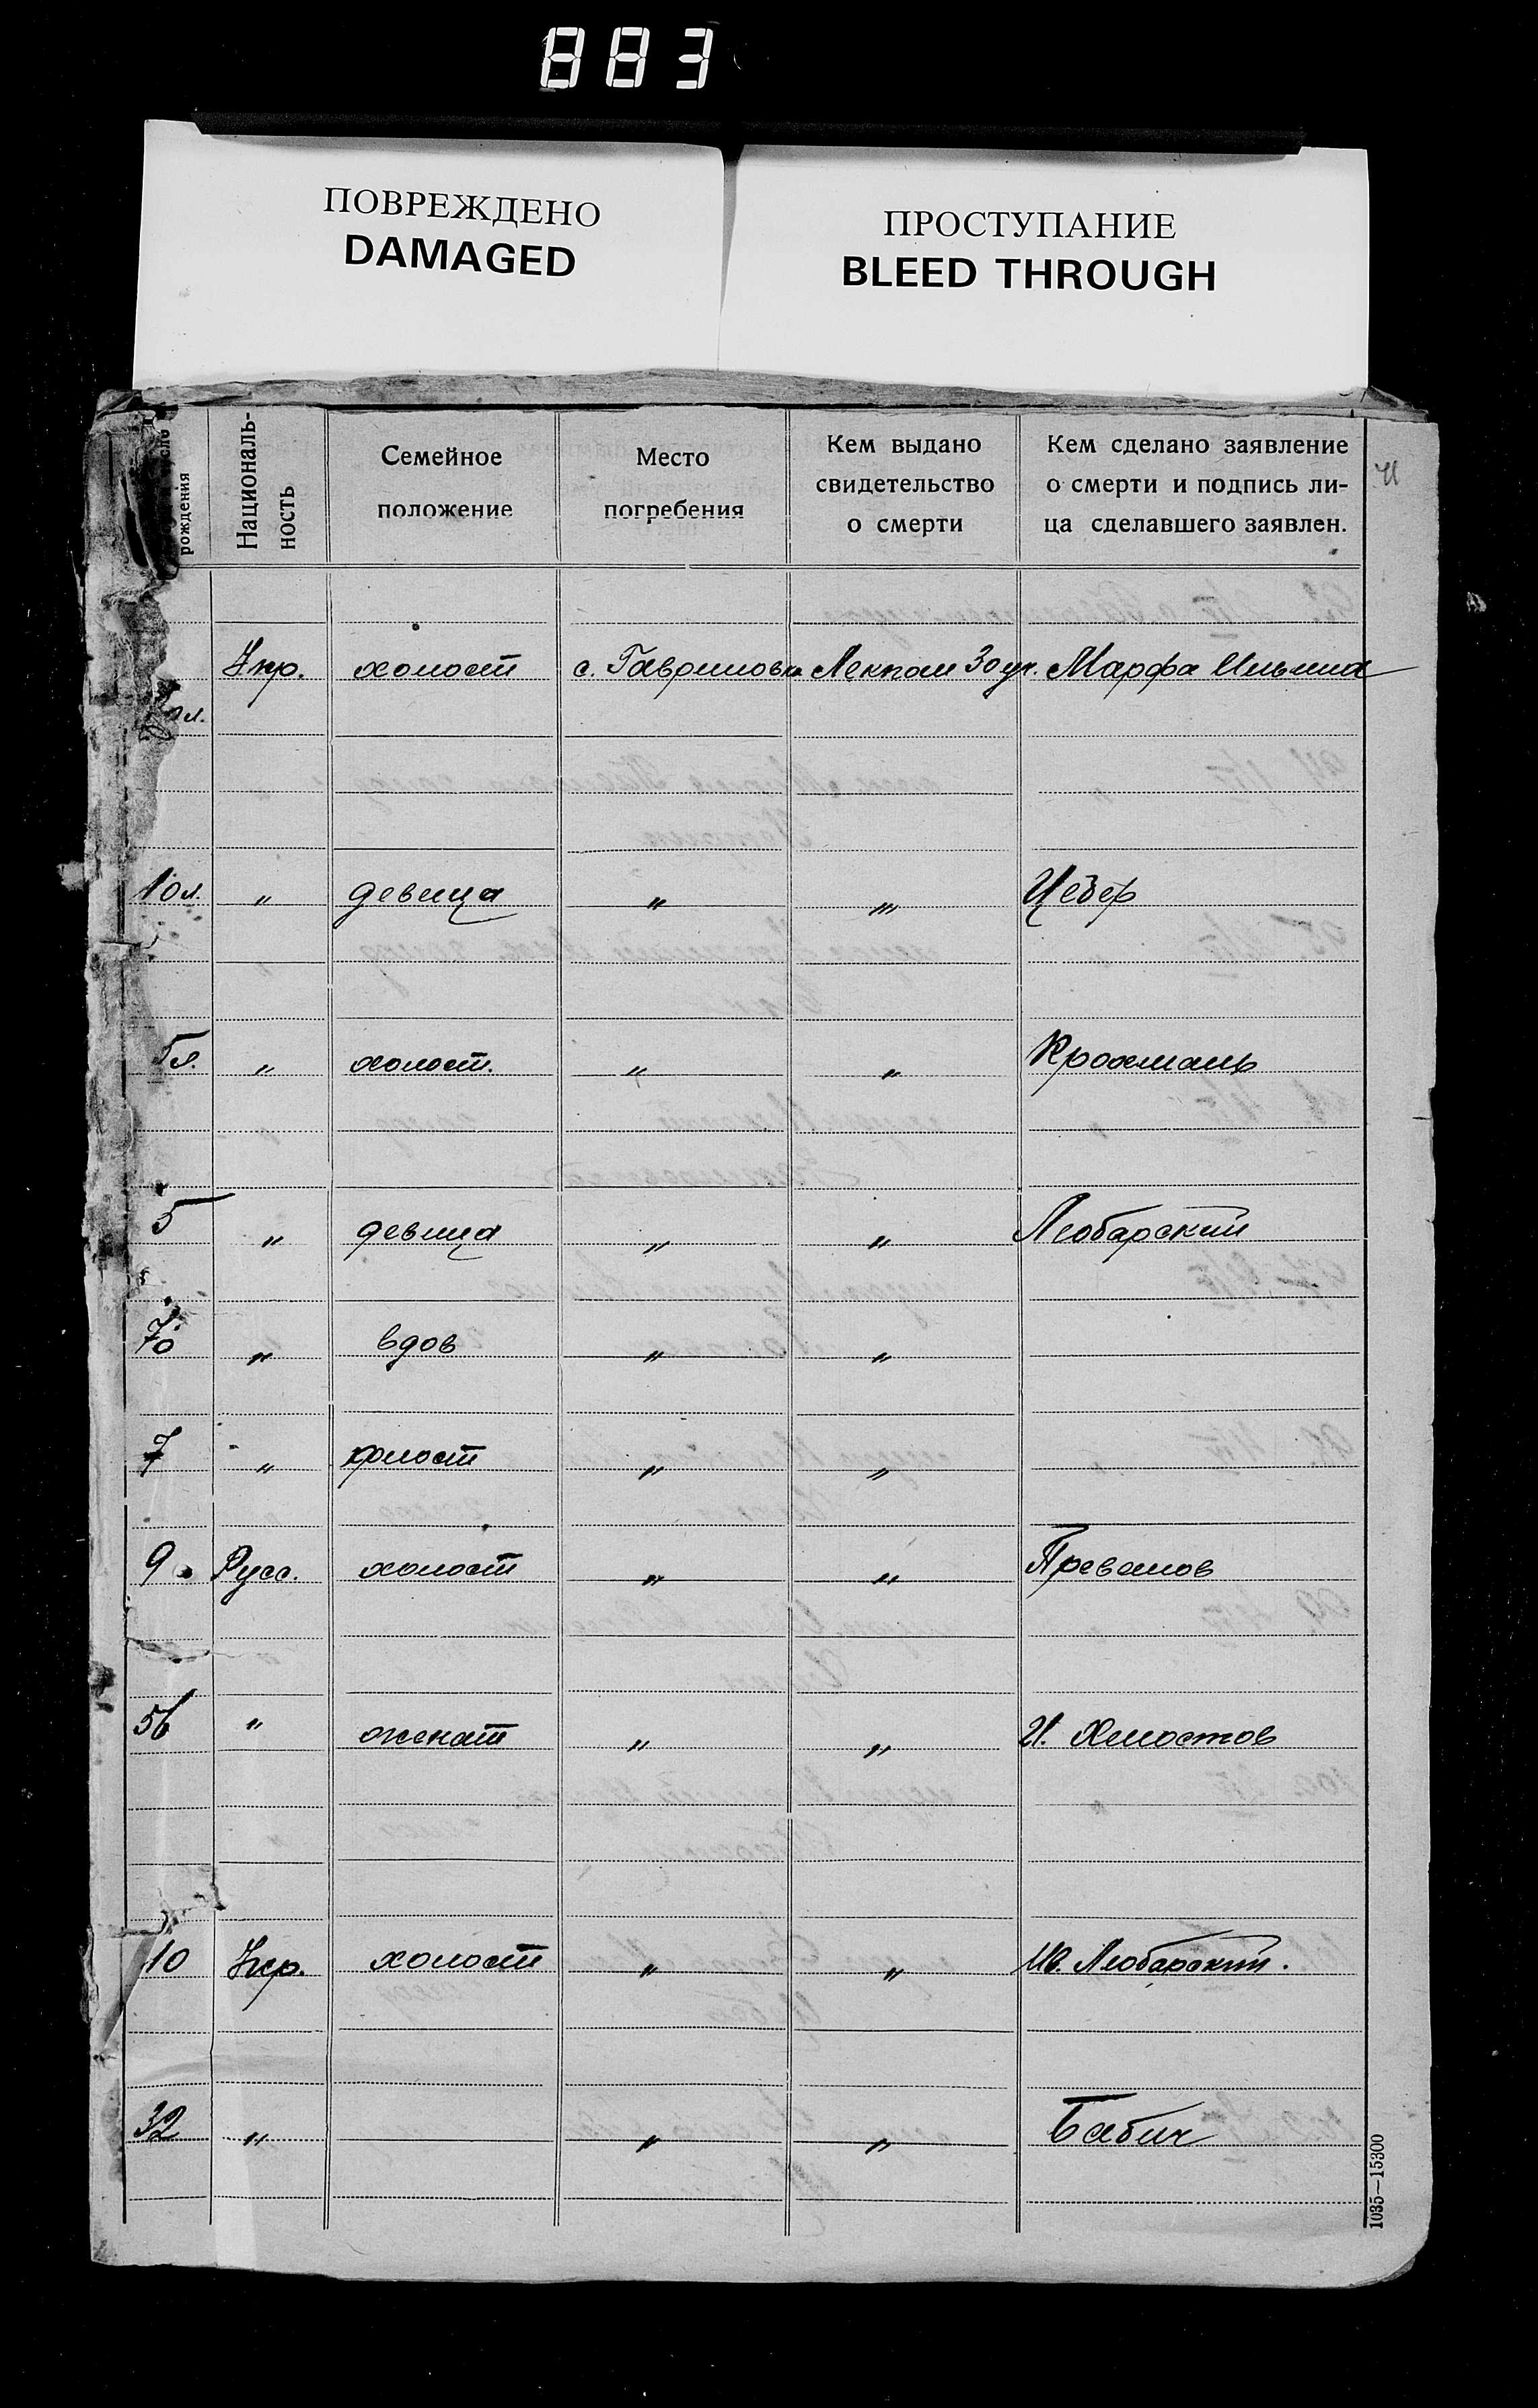 883
ПОВРЕЖДЕНО
DAMAGED
ПРОСТУПАНИЕ
BLEED THROUGH
рождения
Националь-
ность
Семейное
положение
Место
погребения
Кем выдано
свидетельство
о смерти
Кем сделано заявление
о смерти и подпись ли-
ца сделавшего заявлен.
Укр. холост с. Гавриловка Лекпом 3о уч. Марфа Ильина
л.
10 л. " девица " " Цебер
5 л. " холост. " " Крохмаль
5 " девица " " Любарский
70 " вдов " "
7 " холост " "
9 Русс. холост " "
56 " женат " " И. Хлюстов
10 Укр. холост " " Ив. Любарский.
32 " " " Бабич
1035—15300